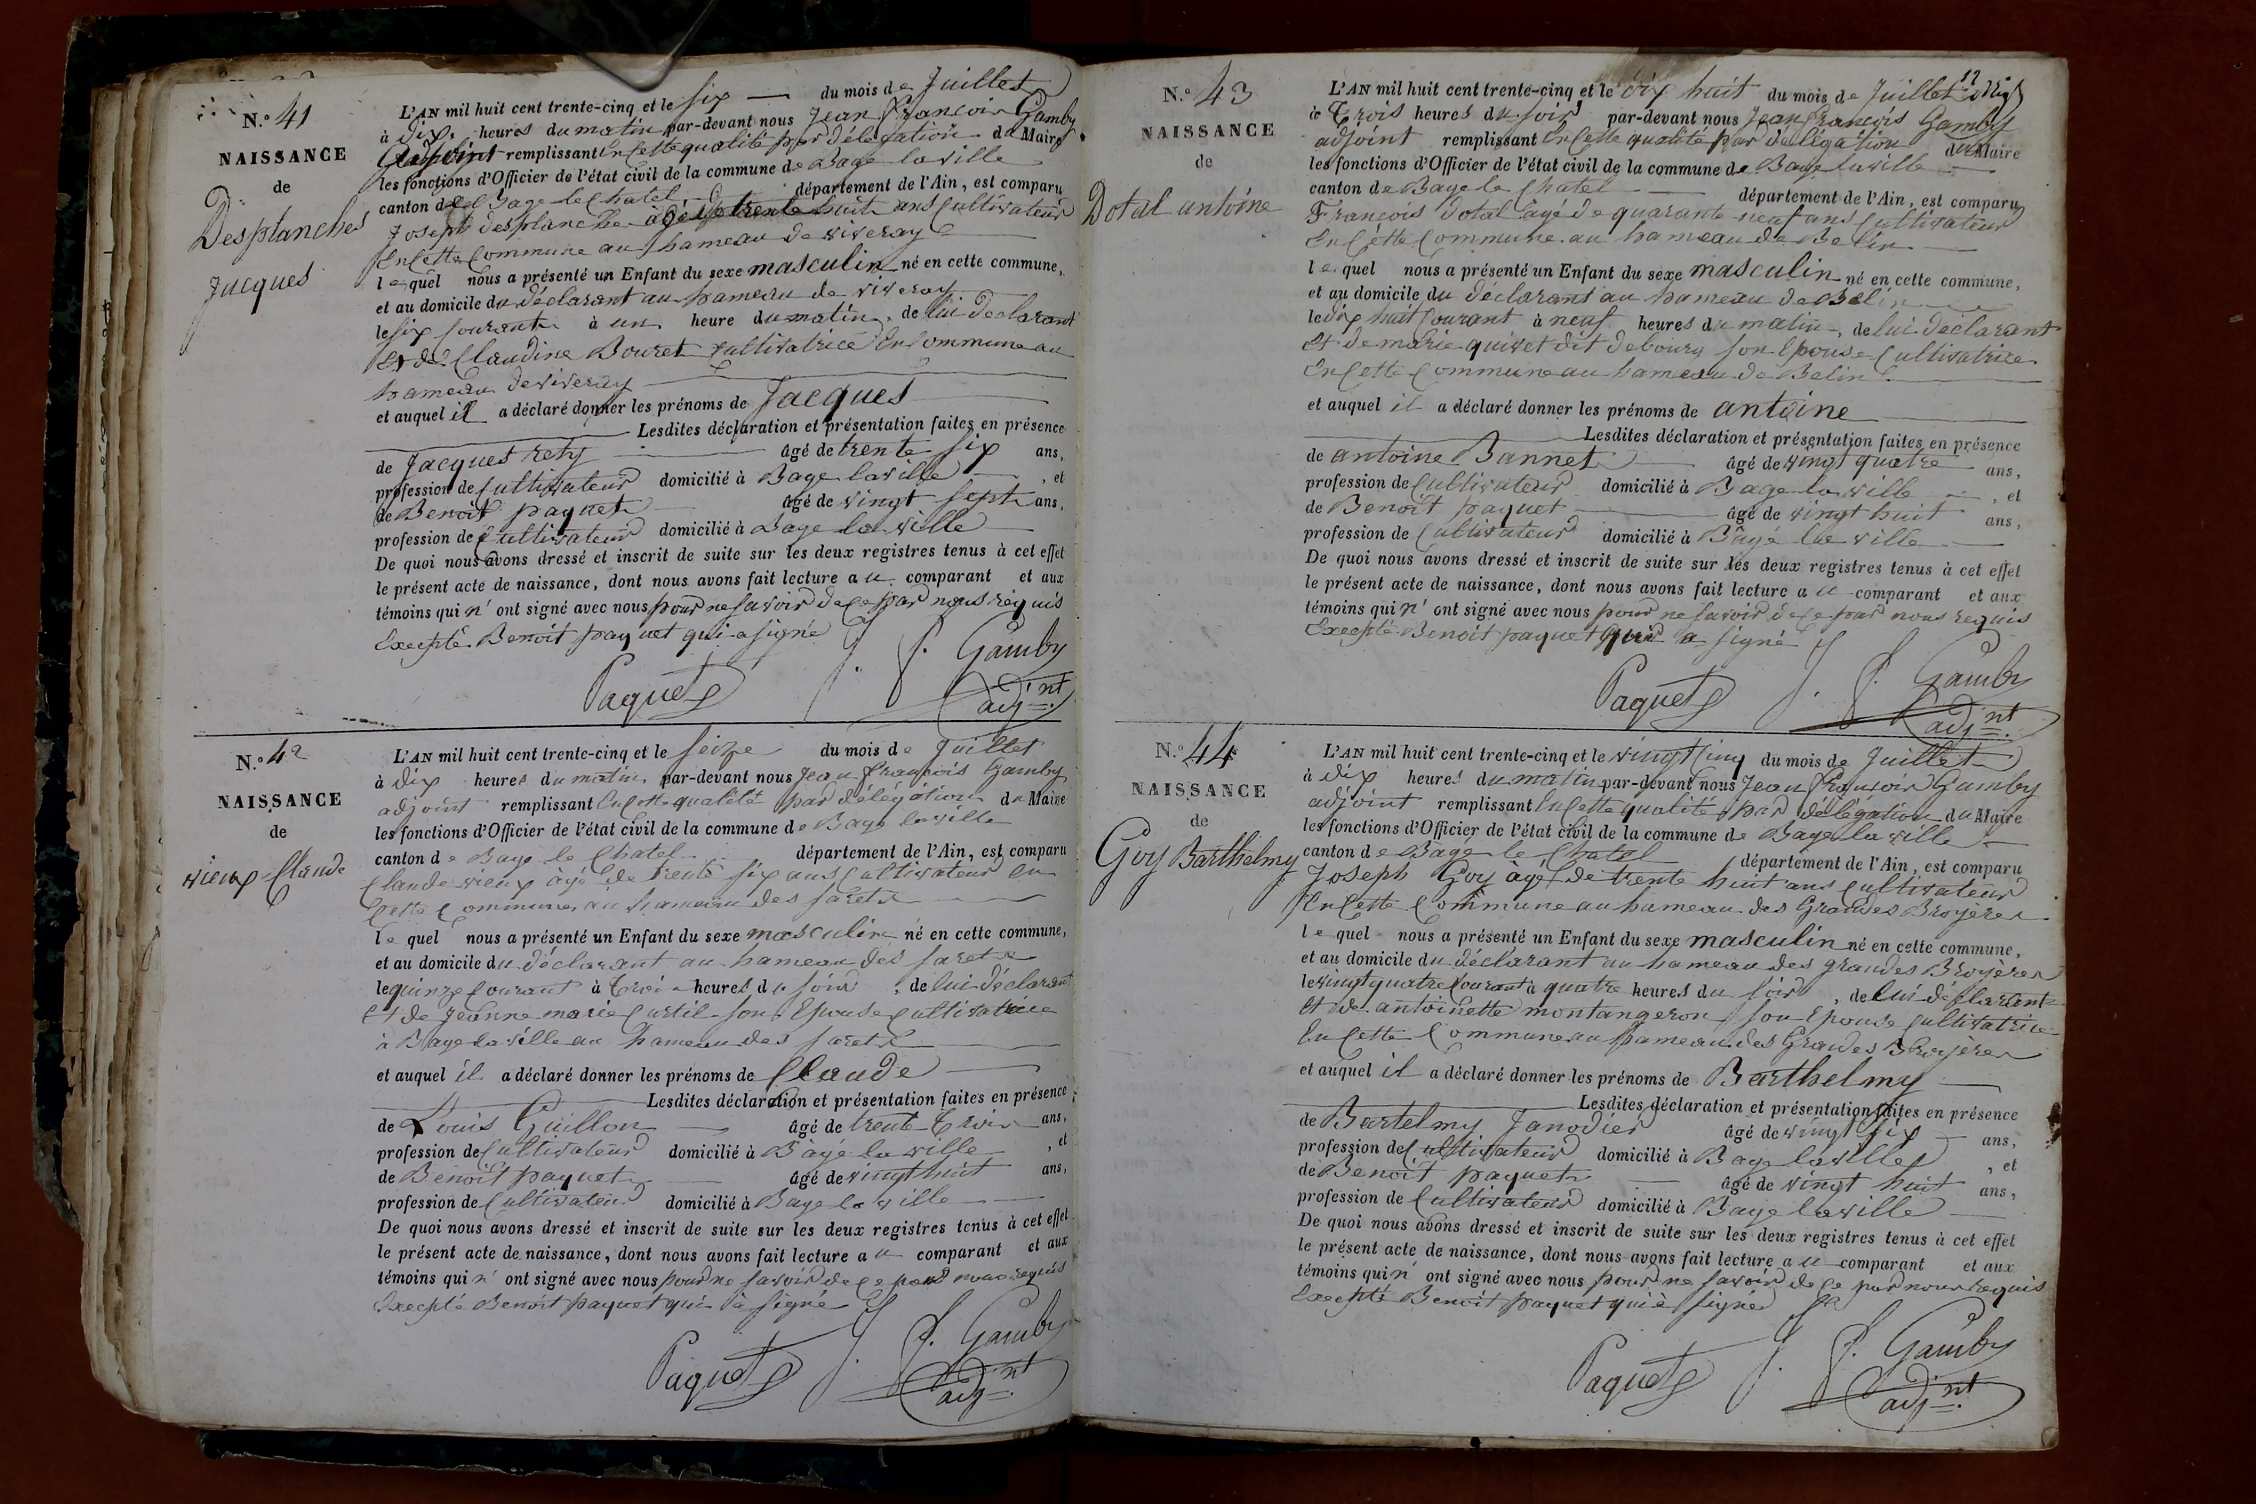 N.° 41
NAISSANCE
de
Desplanches
Jacques
L'AN mil huit cent trente-cinq et le six du mois de Juillet
à dix heures du matin par-devant nous Jean François Gamby
adjoint remplissant en cette qualité par délégation du Maire
les fonctions d'Officier de l'état civil de la commune de Bage la ville
canton de Bage le Chatel département de l'Ain, est comparu
Joseph desplanche agé de trente huit ans cultivateur
en cette commune au hameau de viveray
le quel nous a présenté un Enfant du sexe masculin né en cette commune,
et au domicile du déclarant au hameau de viveray
le six courant à un heure du matin, de lui déclarant
et de Claudine Bouret cultivatrice en commune au
hameau de viveray
et auquel il a déclaré donner les prénoms de Jacques
Lesdites déclaration et présentation faites en présence
de Jacques rety âgé de trente six ans,
profession de cultivateur domicilié à Bage la ville, et
de Benoit paquet âgé de vingt sept ans,
profession de cultivateur domicilié à Bage la ville
De quoi nous avons dressé et inscrit de suite sur les deux registres tenus à cet effet
le présent acte de naissance, dont nous avons fait lecture au comparant et aux
témoins qui n'ont signé avec nous pour ne savoir de ce par nous requis
Excepté Benoit paquet qui a signé
Paquet J. F. Gamby
adj.nt
N.° 42
NAISSANCE
de
vieux Claude
L'AN mil huit cent trente-cinq et le seize du mois de Juillet
à dix heures du matin, par-devant nous Jean François Gamby
adjoint remplissant en cette qualité par délégation du Maire
les fonctions d'Officier de l'état civil de la commune de Bage la ville
canton de Bage le Chatel département de l'Ain, est comparu
Claude vieux àgé de trente six ans cultivateur en
cette commune au hameau des
le quel nous a présenté un Enfant du sexe masculin né en cette commune,
et au domicile du déclarant au hameau des
le quinze courant à trois heures du soir, de lui déclarant
et de Jeanne marie Curtil son Epouse cultivatrice
à Bage la ville au hameau des
et auquel il a déclaré donner les prénoms de Claude
Lesdites déclaration et présentation faites en présence
de Louis Guillon âgé de trente trois ans,
profession de cultivateur domicilié à Bàgé la ville, et
de Benoit paquet âgé de vingt huit ans,
profession de cultivateur domicilié à Bage la ville
De quoi nous avons dressé et inscrit de suite sur les deux registres tenus à cet effet
le présent acte de naissance, dont nous avons fait lecture au comparant et aux
témoins qui n'ont signé avec nous pour ne savoir de ce par nous requis
Excepté Benoit paquet qui à signé
Paquet J. F. Gamby
adj.nt
12
N.° 43
NAISSANCE
de
Dotal antoine
L'AN mil huit cent trente-cinq et le dix huit du mois de Juillet
à trois heures du soir par-devant nous Jean François Gamby
adjoint remplissant en cette qualité par délégation du Maire
les fonctions d'Officier de l'état civil de la commune de Bage la ville
canton de Bage le Chatel département de l'Ain, est comparu
François Dotal agé de quarante neuf ans cultivateur
en cette commune au hameau de Belin
le quel nous a présenté un Enfant du sexe masculin né en cette commune,
et au domicile du déclarant au hameau de Belin
le dix huit courant à neuf heures du matin, de lui déclarant
et de marie quivet dit debourg son Epouse cultivatrice
en cette commune au hameau de Belin
et auquel il a déclaré donner les prénoms de antoine
Lesdites déclaration et présentation faites en présence
de antoine Bannet âgé de vingt quatre ans,
profession de cultivateur domicilié à Bage la ville, et
de Benoit paquet âgé de vingt huit ans,
profession de cultivateur domicilié à Bâgé la ville
De quoi nous avons dressé et inscrit de suite sur les deux registres tenus à cet effet
le présent acte de naissance, dont nous avons fait lecture au comparant et aux
témoins qui n'ont signé avec nous pour ne savoir de ce par nous requis
Excepté Benoit paquet qui a signé
Paquet J. F. Gamby
adj.nt
N.° 44
NAISSANCE
de
Goy Barthelmy
L'AN mil huit cent trente-cinq et le vingt cinq du mois de Juillet
à dix heures du matin par-devant nous Jean François Gamby
adjoint remplissant en cette qualité par délégation du Maire
les fonctions d'Officier de l'état civil de la commune de Bage la ville
canton de Bagé le Chatel département de l'Ain, est comparu
Joseph Goy àgé de trente huit ans cultivateur
en cette commune au hameau des Grandes Broyères
le quel nous a présenté un Enfant du sexe masculin né en cette commune,
et au domicile du déclarant au hameau des grandes Broyères
le vingt quatre courant à quatre heures du soir, de lui déclarant
et de antoinette montangeron son Epouse cultivatrice
en cette commune au hameau des Grandes Broyères
et auquel il a déclaré donner les prénoms de Barthelmy
Lesdites déclaration et présentation faites en présence
de Bartelmy Janodier âgé de vingt six ans,
profession de cultivateur domicilié à Bage la ville, et
de Benoit paquet âgé de vingt huit ans,
profession de cultivateur domicilié à Bage la ville
De quoi nous avons dressé et inscrit de suite sur les deux registres tenus à cet effet
le présent acte de naissance, dont nous avons fait lecture au comparant et aux
témoins qui n'ont signé avec nous pour ne savoir de ce par nous requis
Excepté Benoit paquet qui à signé
Paquet J. F. Gamby
adj.nt